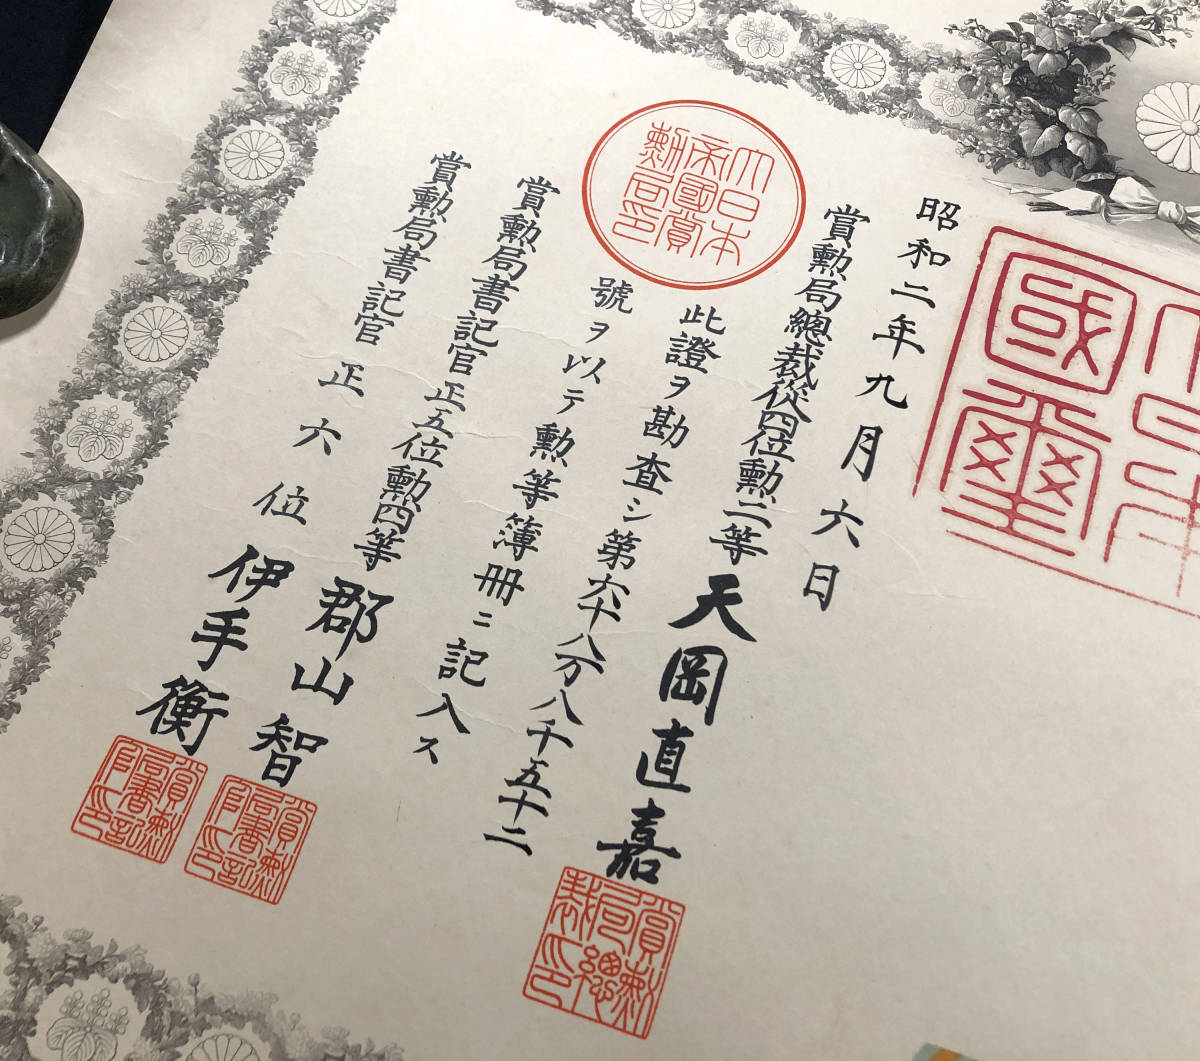 國璽
昭和二年九月六日
賞勳局總裁從四位勳二等天岡直嘉
賞勳局總裁印
大日本帝國賞勳局印
此證ヲ勘査シ第六十八万八千五十二
號ヲ以テ勳等簿冊ニ記入ス
賞勳局書記官正五位勳四等郡山智
賞勳局書記官印
賞勳局書記官正六位伊手衡
賞勳局書記官印